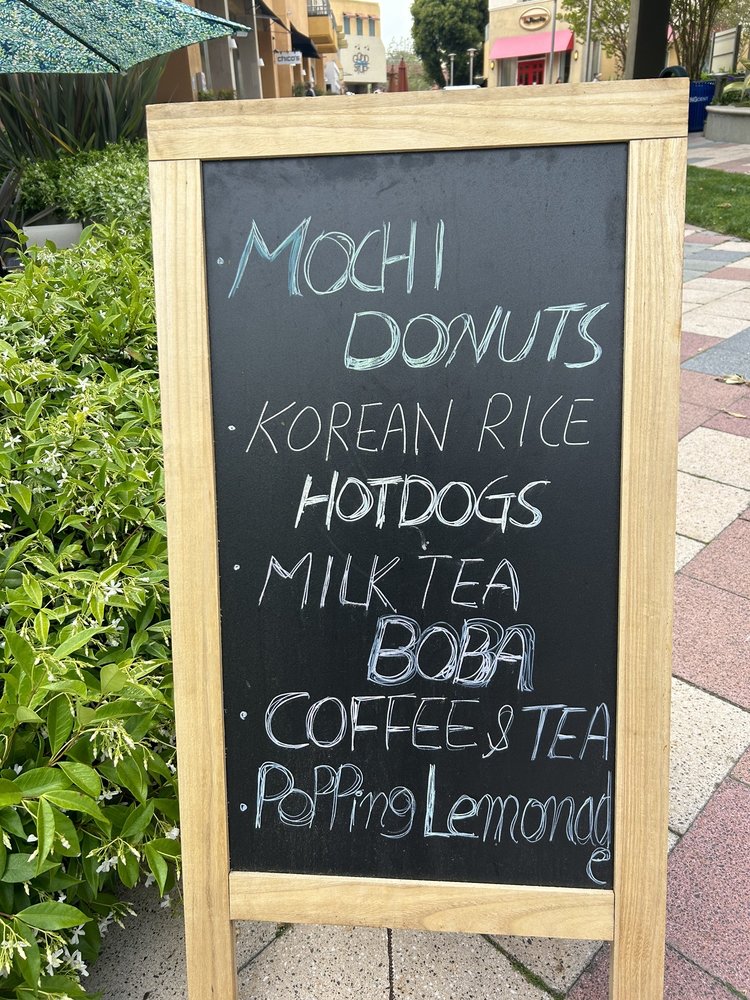 chico's
· MOCHI
DONUTS
· KOREAN RICE
HOTDOGS
· MILK TEA
BOBA
· COFFEE & TEA
· PoPPing Lemonad
e